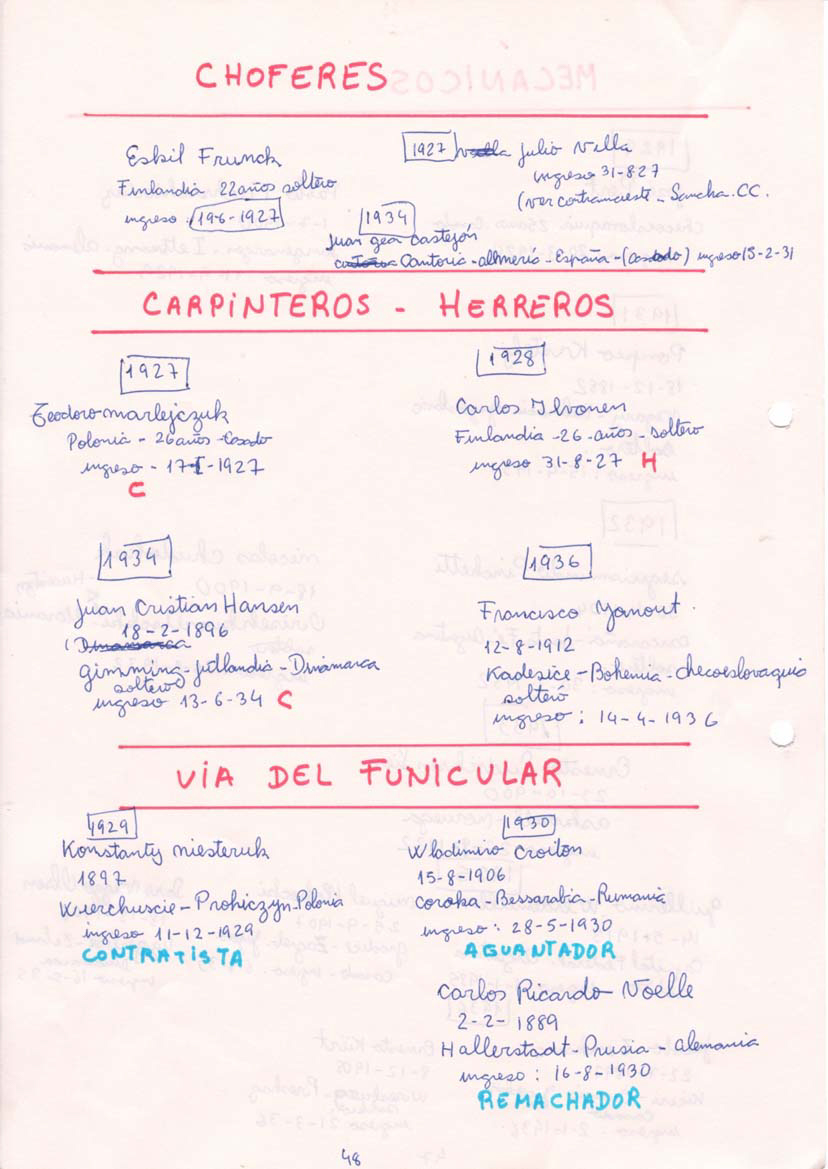 CHOFERES
Eskil Frunck
Finlandia 22 años soltero
ingreso: 19-6-1927
1927 Julio Villa
ingreso 31-8-27
(ver contramaest - Sancha. CC.
1934
Juan Gea Castejón
Cantoria - Almería - España - (casado) ingreso 15-2-31
CARPINTEROS - HERREROS
1927
Teodoro Marlejczuk
Polonia - 26 años - Casado
ingreso - 17-I-1927
C
1928
Carlos Ilvonen
Finlandia - 26 - años - soltero
ingreso 31-8-27 H
1934
Juan Cristian Hansen
18-2-1896
(Dinamarca
Gimming - Jutlandia - Dinamarca
soltero
ingreso 13-6-34 C
1936
Francisco Yanout.
12-8-1912
Kadesice - Bohemia - Checoeslovaquia
soltero
ingreso: 14-4-1936
VIA DEL FUNICULAR
1929
Konstanty Niesteruk
1897
Wierchuscie - Prohiczyn - Polonia
ingreso 11-12-1929
CONTRATISTA
1930
Wladimiro Croiton
15-8-1906
Coroka - Bessarabia - Rumania
ingreso: 28-5-1930
AGUANTADOR
Carlos Ricardo Noelle
2-2-1889
Hallerstadt - Prusia - Alemania
ingreso: 16-8-1930
REMACHADOR
48